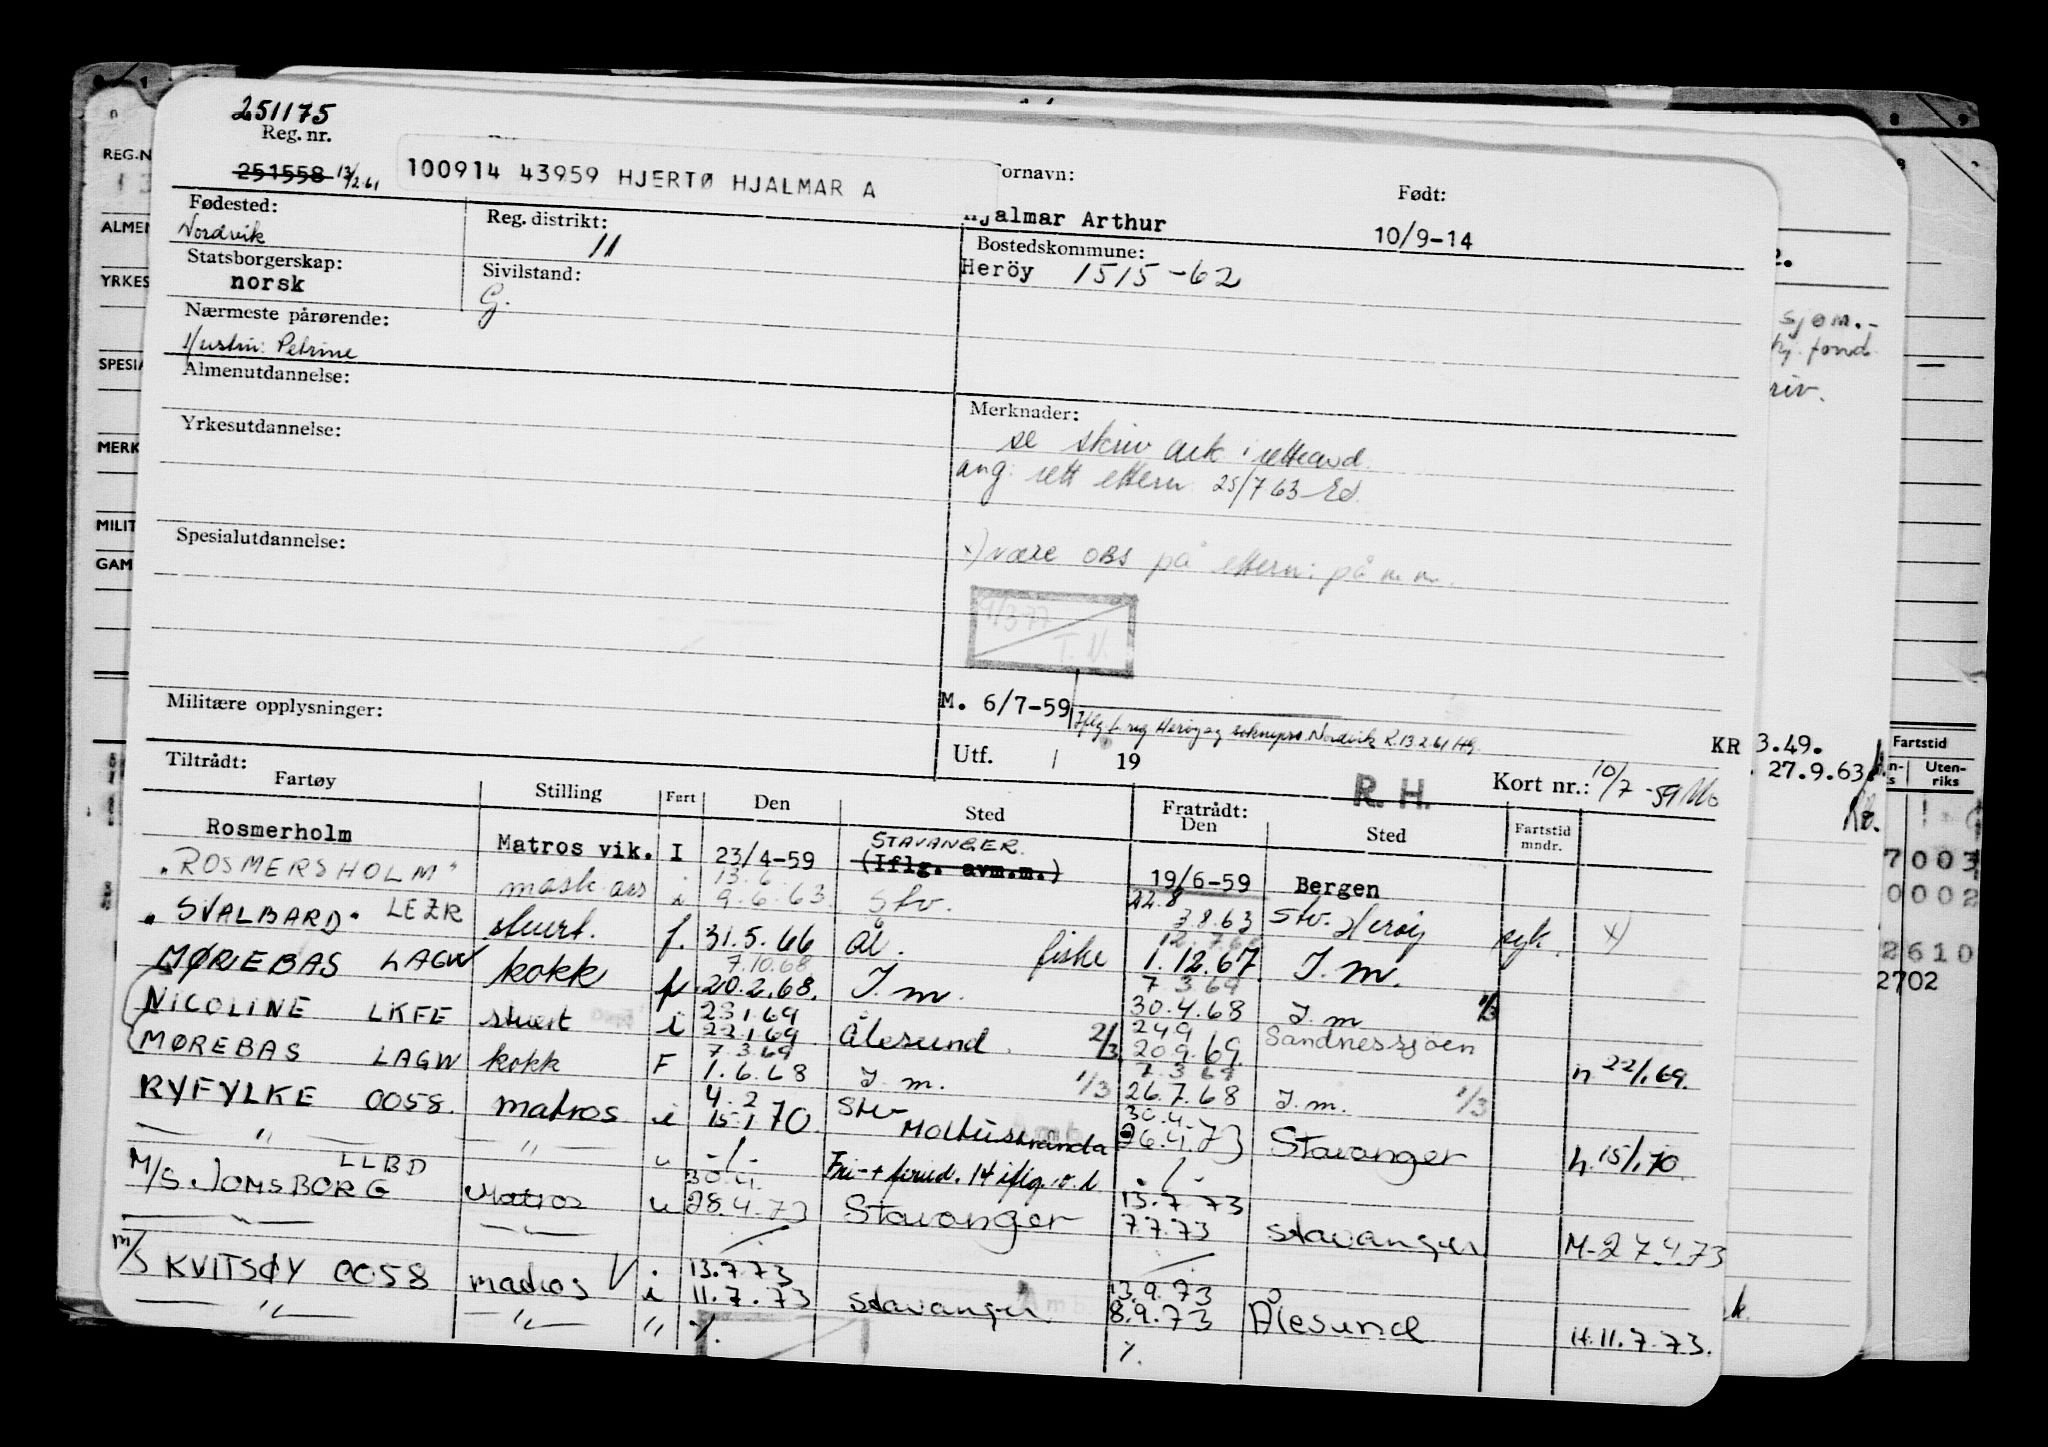 251175
Reg. nr.
251558 13/2.61
100914 43959 HJERTØ HJALMAR A
ornavn:
Født:
jalmar Arthur
10/9-14
Fødested:
Nordvik
Reg. distrikt:
11
Bostedskommune:
Heröy 1515-62
Statsborgerskap:
norsk
Sivilstand:
G.
Nærmeste pårørende:
Hustru: Petrine
Almenutdannelse:
Yrkesutdannelse:
Merknader:
se skriv ark i
ang: rett ettern. 25/7 63
Spesialutdannelse:
x) være OBS på ettern: på m.m.
9/3-77
T.N.
Militære opplysninger:
M. 6/7-59
Nordvik
Utf. / 19
R. H.
Kort nr.: 10/7-59
Tiltrådt:
Fartøy Stilling Fart Den Sted Fratrådt: Den Sted Fartstid mndr.
Rosmerholm Matros vik. I 23/4-59 STAVANGER (Iflg. avm.m.) 19/6-59 Bergen
"ROSMERSHOLM" mask. ass i 13.6 9.6.63 Stv. 22.8 3.8.63 Stv. Herøy syk. x)
"SVALBARD" LEZR stuert. f. 31.5.66 Ål. fiske 12.7.6 1.12.67 J.m.
MØREBAS LAGW kokk f. 7.10.68 20.2.68. J.m. 7.3.69 30.4.68 J.m 1/3
NICOLINE LKFE stuert i 23.1.69 22.1.69 Ålesund. 2/3 24.9 20.9.69 Sandnessjøen h 22/1.69.
MØREBAS LAGW kokk F 7.3.69 1.6.68 J.m. 1/3 7.3.69 26.7.68 J.m. 1/3
RYFYLKE 0058. matros i 4.2 15.1 70 Stv Moltustranda 30.4. 26.4.73 Stavanger h. 15/1.70
— " — — " — " -/- Fri-+ 14 iflg. -/-
M/S. JOMSBORG LLBD Matros u 30.4. 28.4.73 Stavanger 13.7.73 7.7.73 Stavanger M-27.4.73
— " — — " —
M/S KVITSØY 0058 matros i 13.7.73 11.7.73 Stavanger. 13.9.73 8.9.73 Ålesund H.11.7.73.
— " — — " — " ./. ./.
REG.N
ALMEN
YRKES
SPESIA
MERK
MILIT
GAM
sjøm.-
fond
riv.
KR 3.49.
27.9.63
Fartstid
Uten-
riks
7003
0002
2610
2702